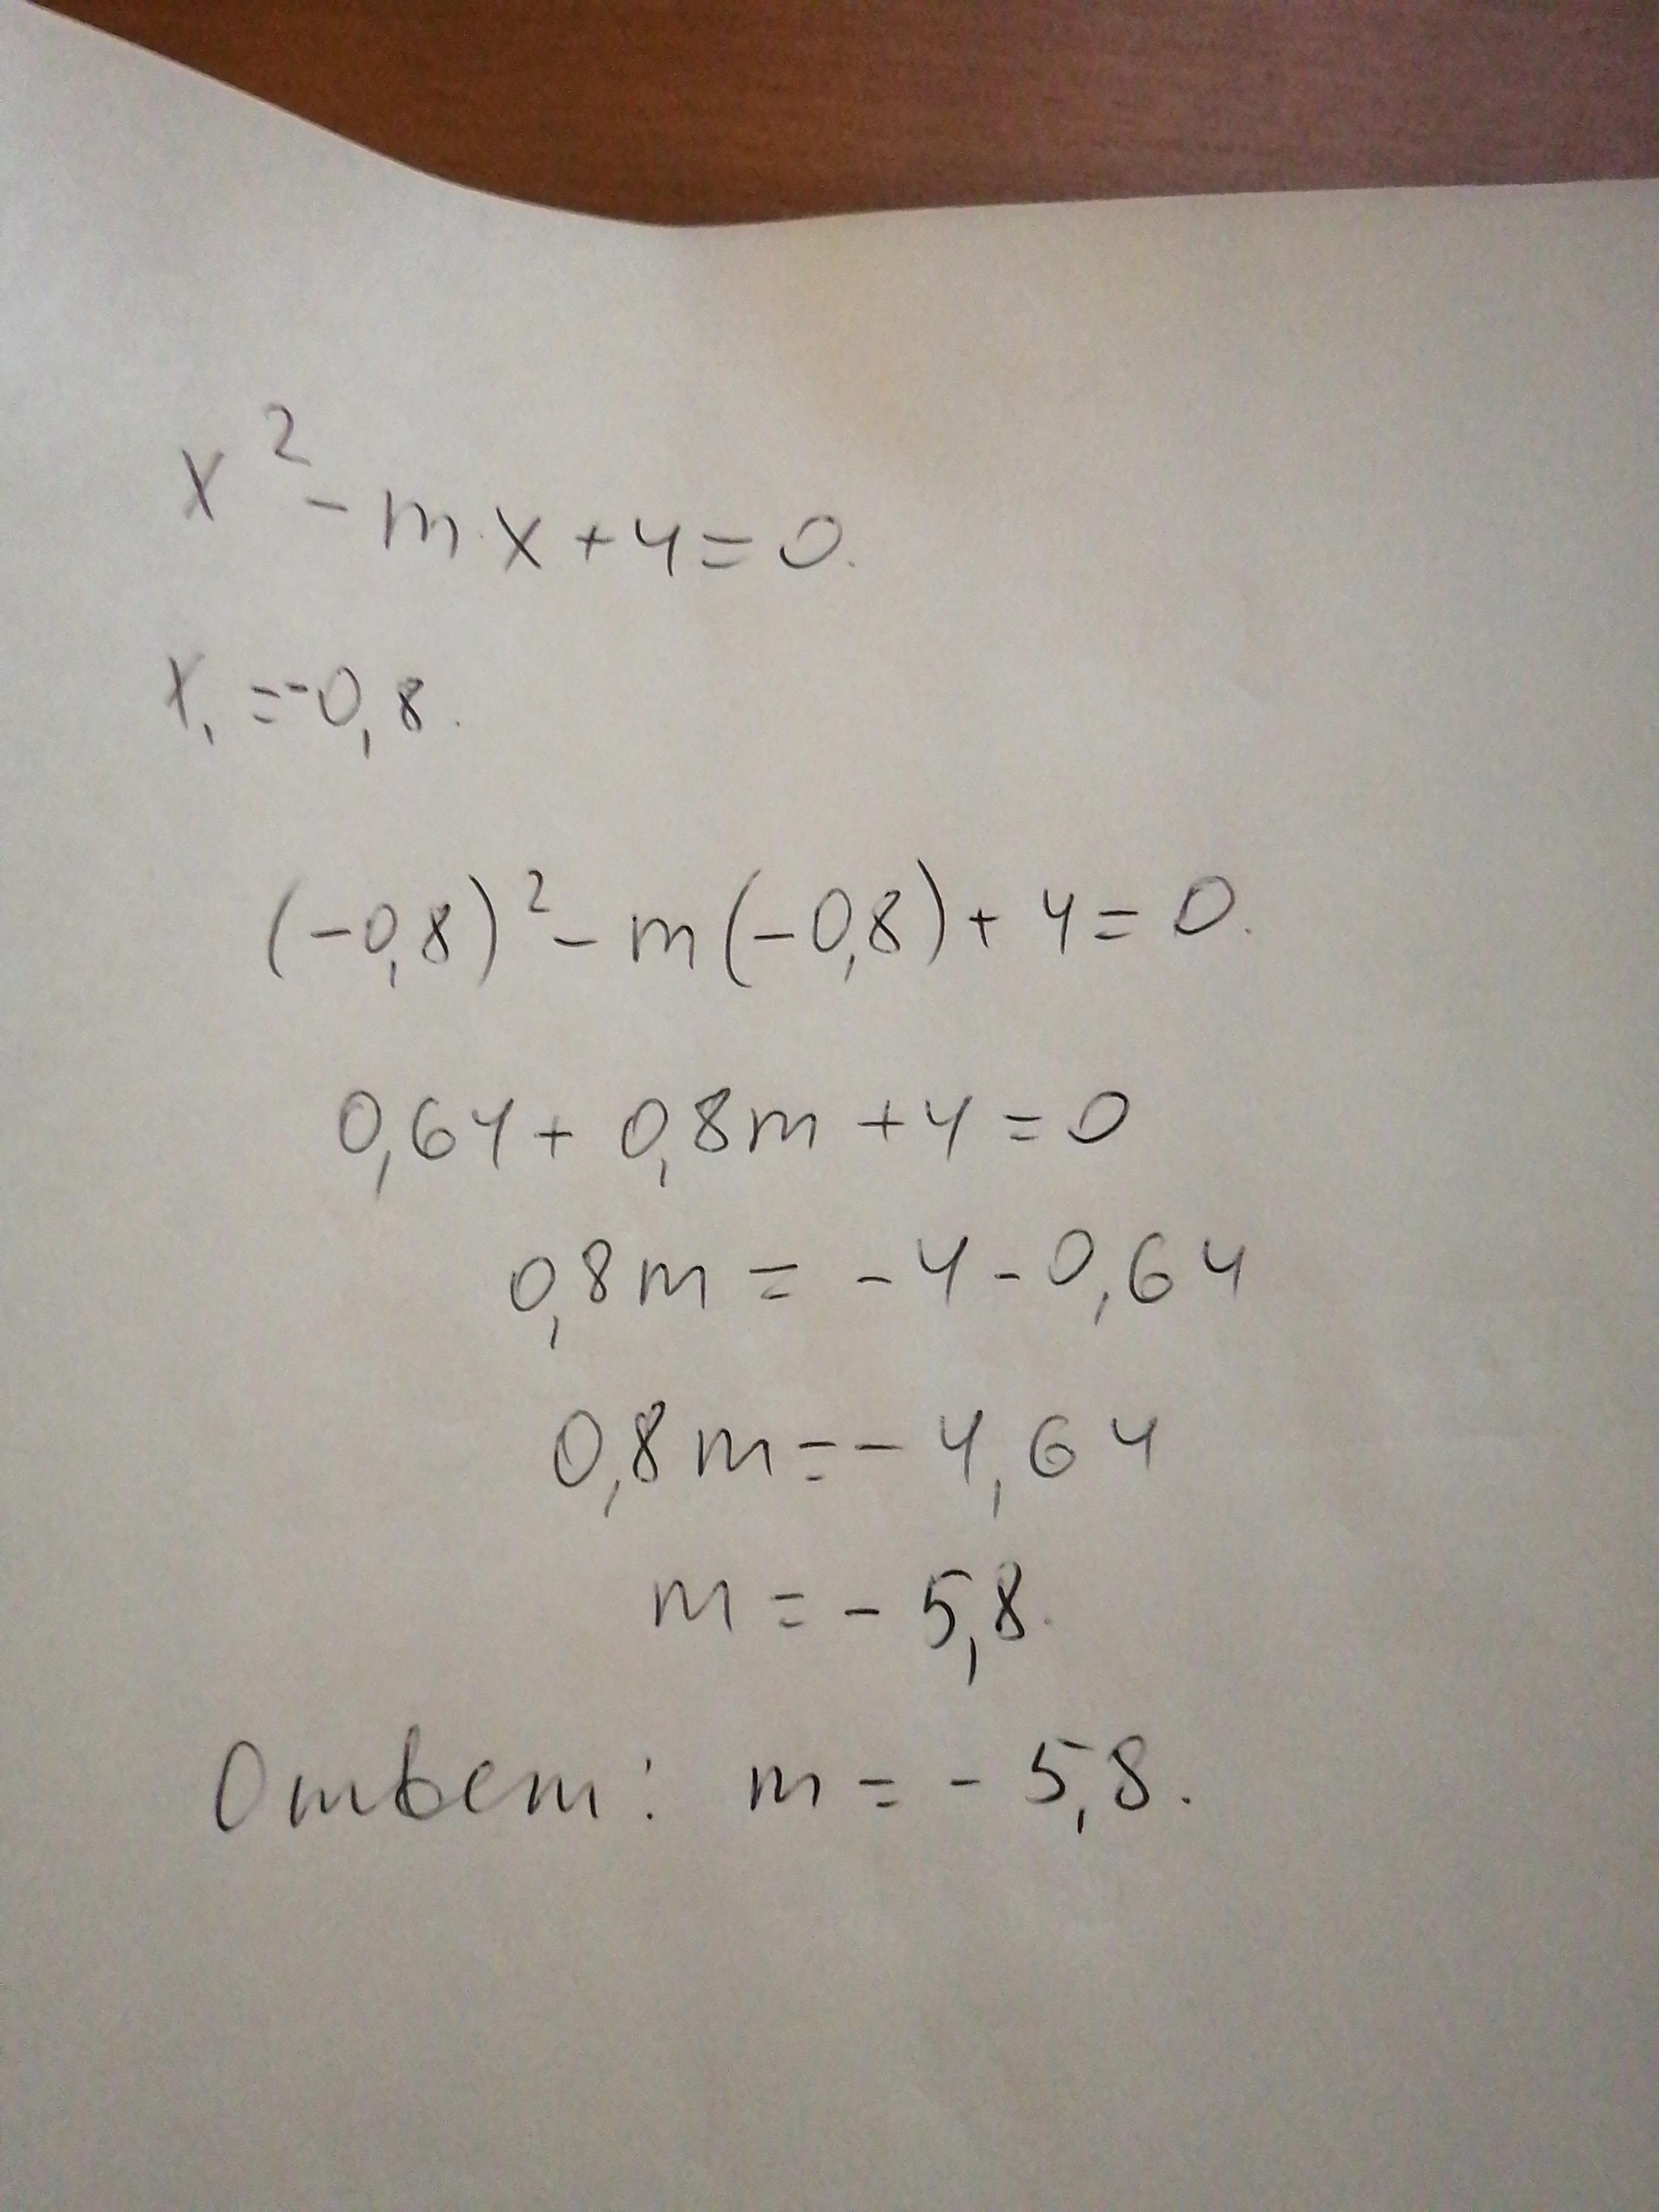 x² - m x + 4 = 0.
x₁ = -0,8.
(-0,8)² - m(-0,8) + 4 = 0.
0,64 + 0,8m + 4 = 0
0,8m = -4 - 0,64
0,8m = -4,64
m = -5,8.
Ответ: m = -5,8.